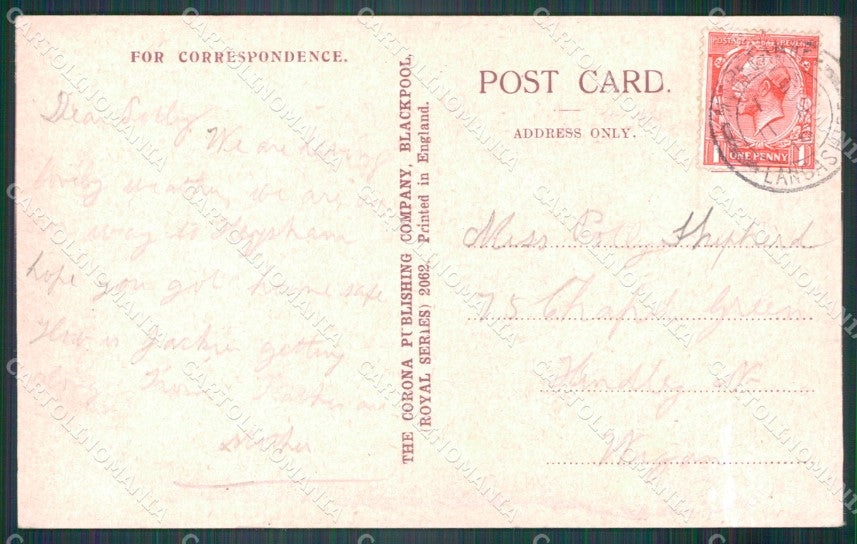 FOR CORRESPONDENCE.
Dear Polly
We are having
lovely weather we are on
way to Heysham
hope you got home safe
How is Jackie getting
along
Mother
THE CORONA PUBLISHING COMPANY, BLACKPOOL,
(ROYAL SERIES) 2062. Printed in England.
POST CARD.
ADDRESS ONLY.
POSTAGE REVENUE
ONE PENNY
LANCASTER
Miss Polly Shepherd
75 Chapel Green
Hindley Nr
Wigan
CARTOLINOMANIA